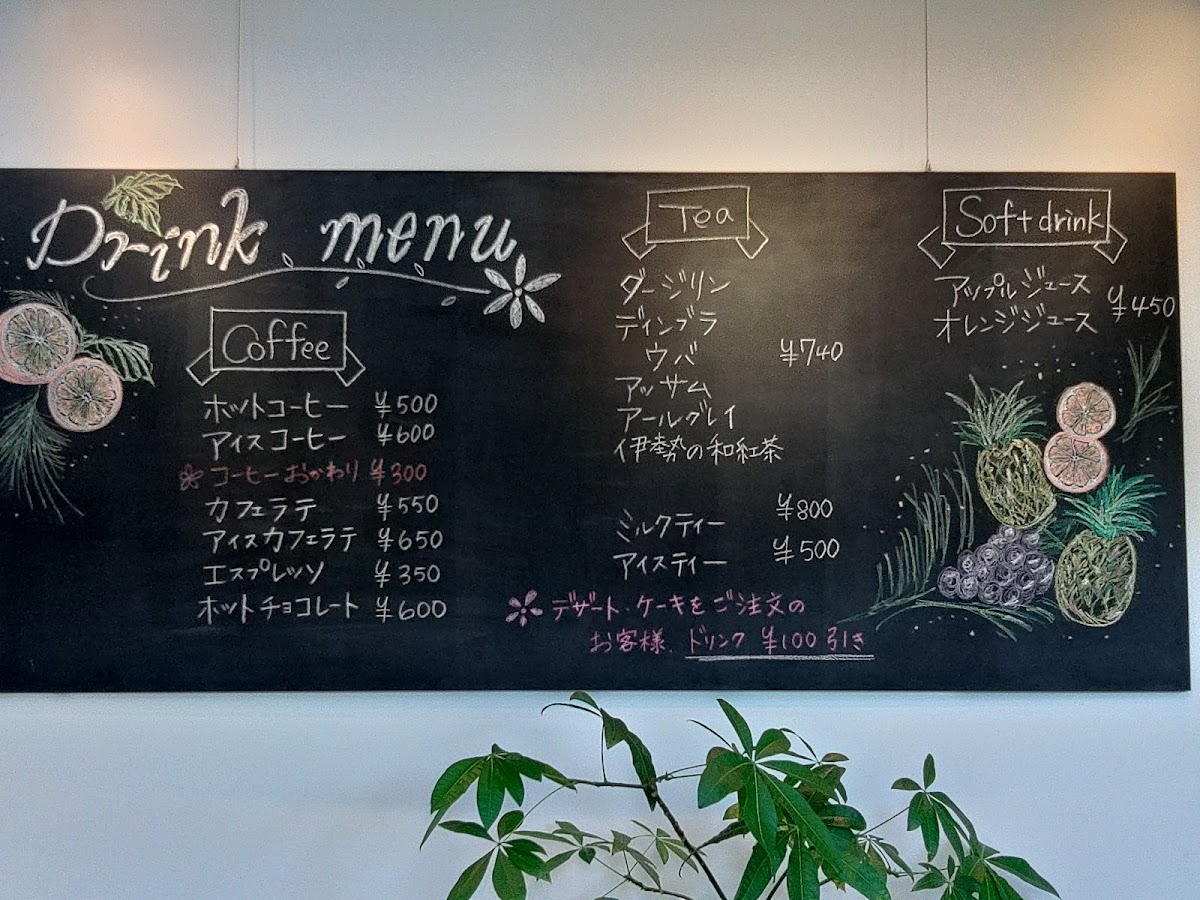 Drink menu
Coffee
ホットコーヒー ¥500
アイスコーヒー ¥600
コーヒーおかわり ¥300
カフェラテ ¥550
アイスカフェラテ ¥650
エスプレッソ ¥350
ホットチョコレート ¥600
Tea
ダージリン
ディンブラ
ウバ ¥740
アッサム
アールグレイ
伊勢の和紅茶
ミルクティー ¥800
アイスティー ¥500
デザート・ケーキをご注文の
お客様、ドリンク ¥100引き
Soft drink
アップルジュース
オレンジジュース ¥450